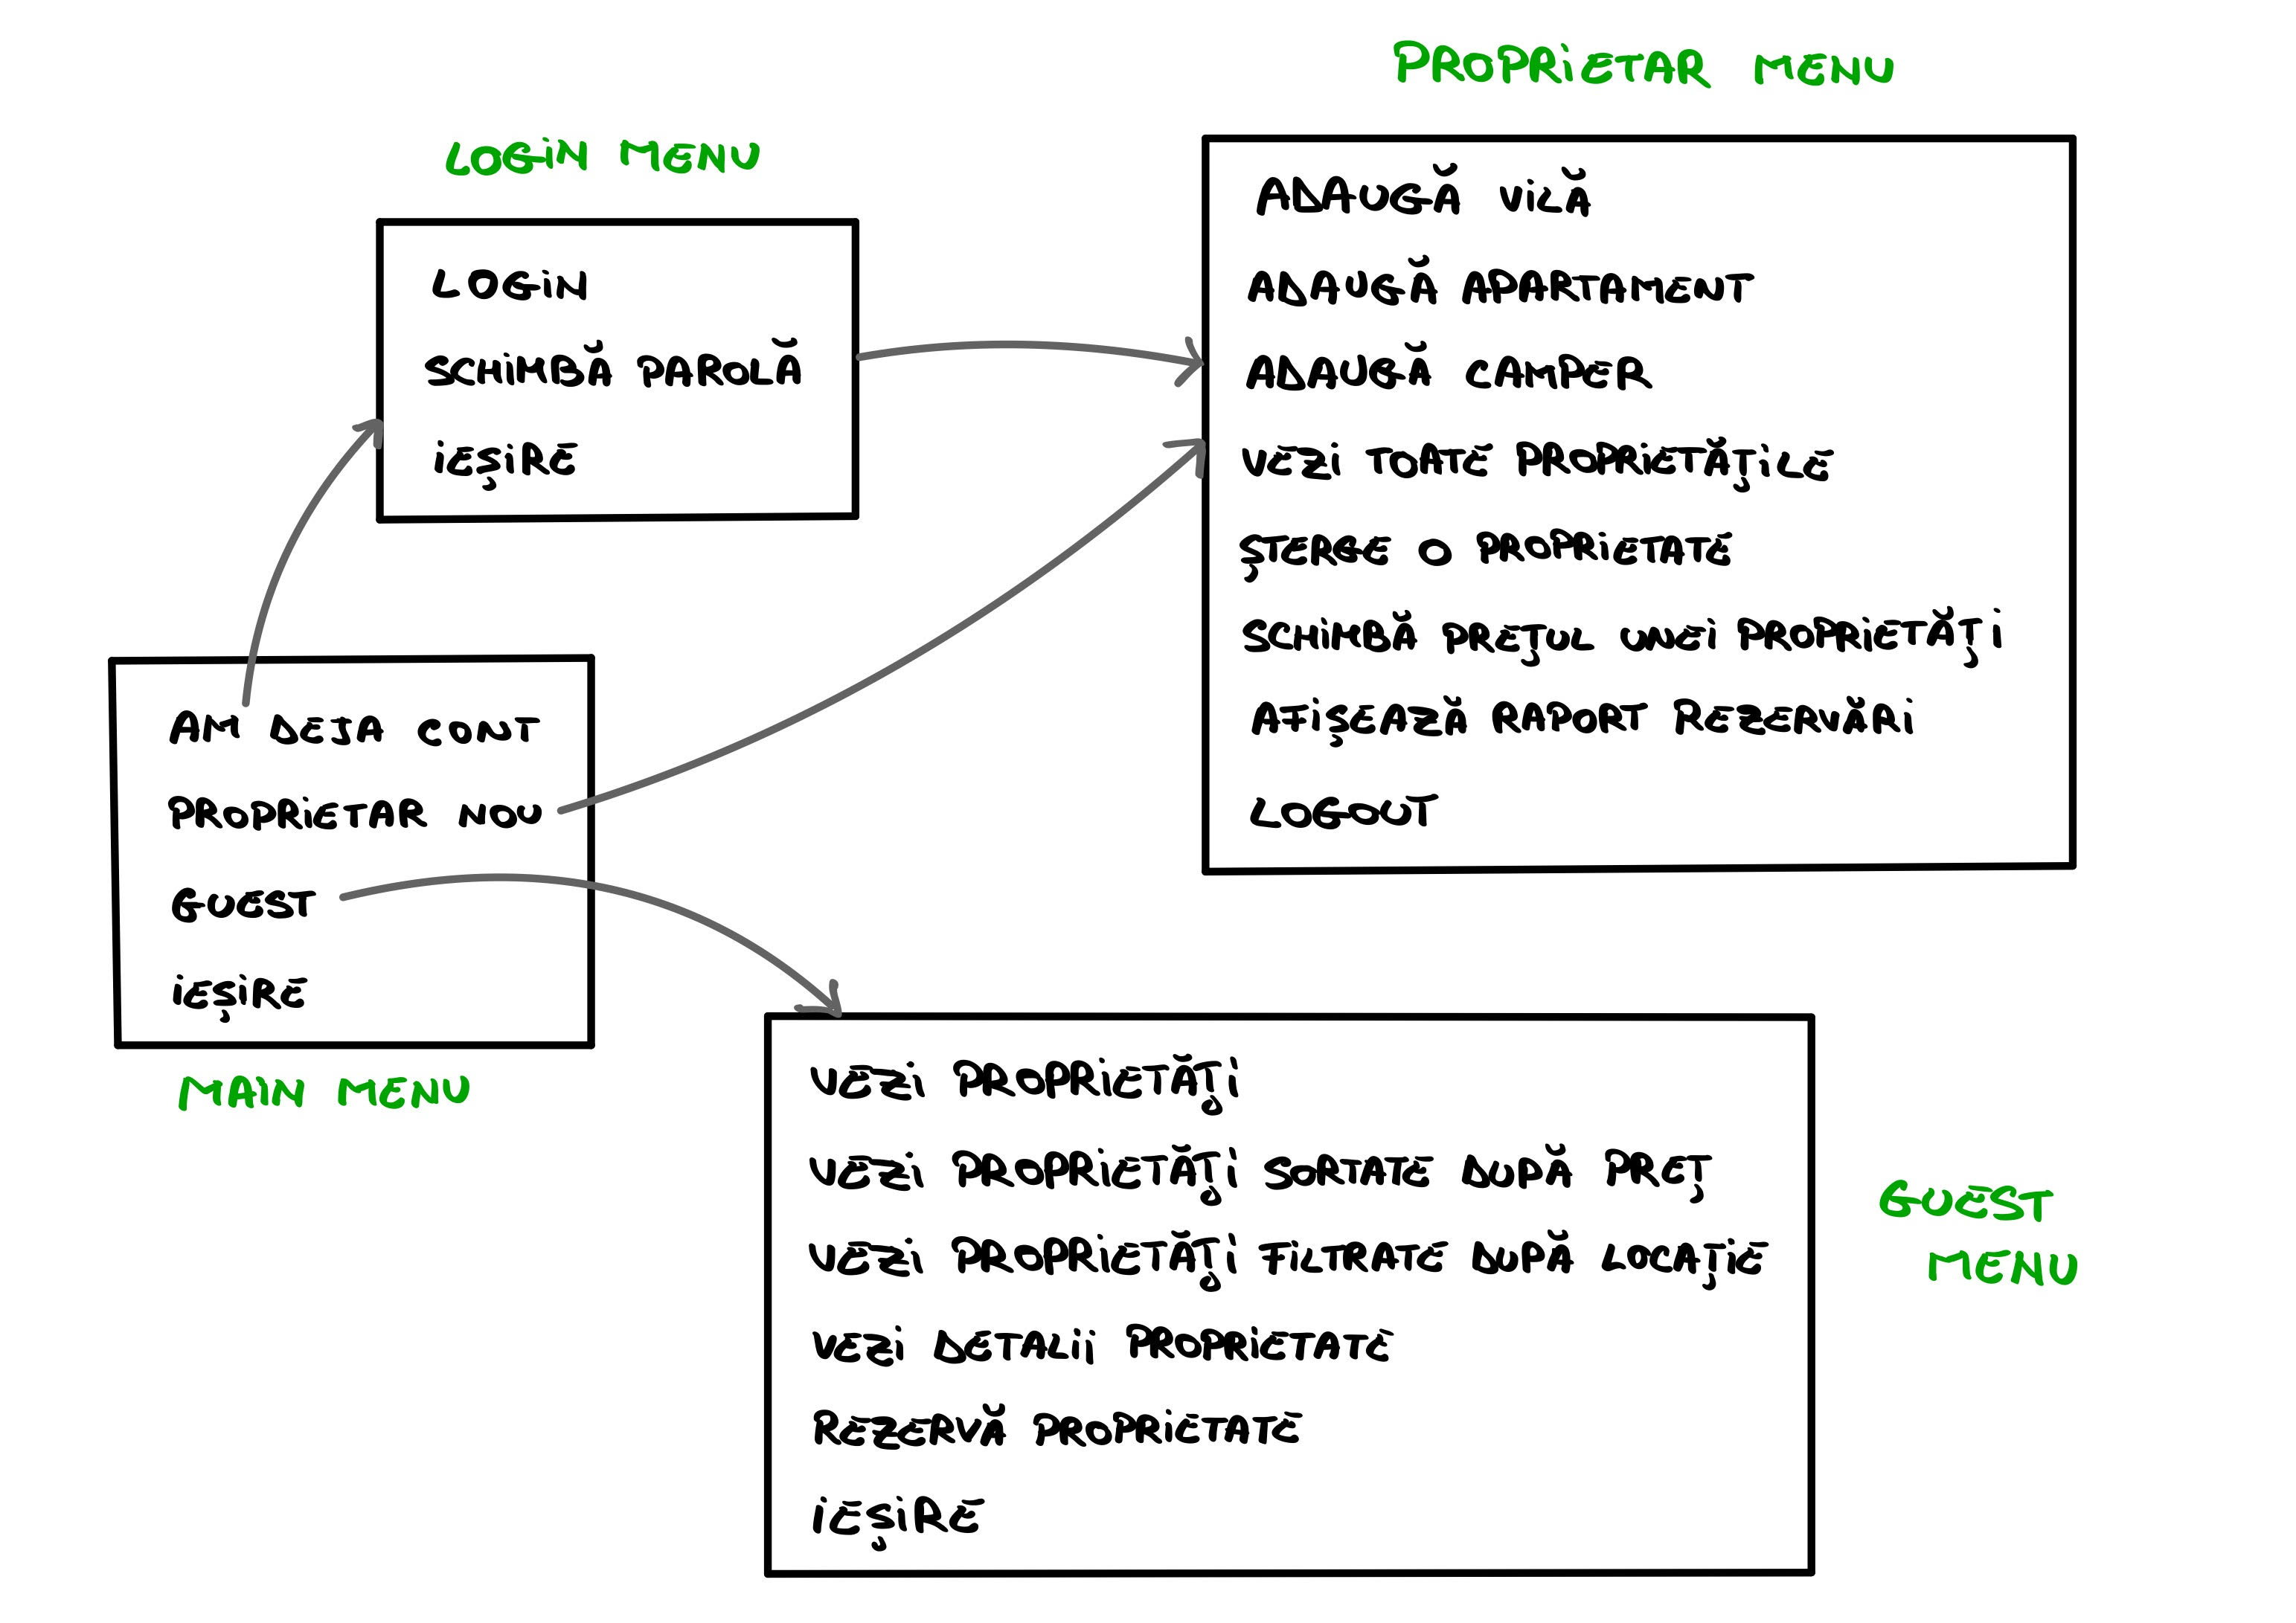 PROPRiETAR MENU
ADAUGĂ ViLĂ
ADAUGĂ APARTAMENT
ADAUGĂ CAMPER
VEZi TOATE PROPRiETĂȚiLE
ȘTERGE O PROPRiETATE
SCHiMBĂ PREȚUL UNEi PROPRiETĂȚi
AFiȘEAZĂ RAPORT REZERVĂRi
LOGOUT
LOGiN MENU
LOGiN
SCHiMBĂ PAROLĂ
iEȘiRE
AM DEJA CONT
PROPRiETAR NOU
GUEST
iEȘiRE
MAiN MENU
VEZi PROPRiETĂȚi
VEZi PROPRiETĂȚi SORTATE DUPĂ PREȚ
VEZi PROPRiETĂȚi FiLTRATE DUPĂ LOCAȚiE
VEZi DETALii PROPRiETATE
REZERVĂ PROPRiETATE
iEȘiRE
GUEST
MENU